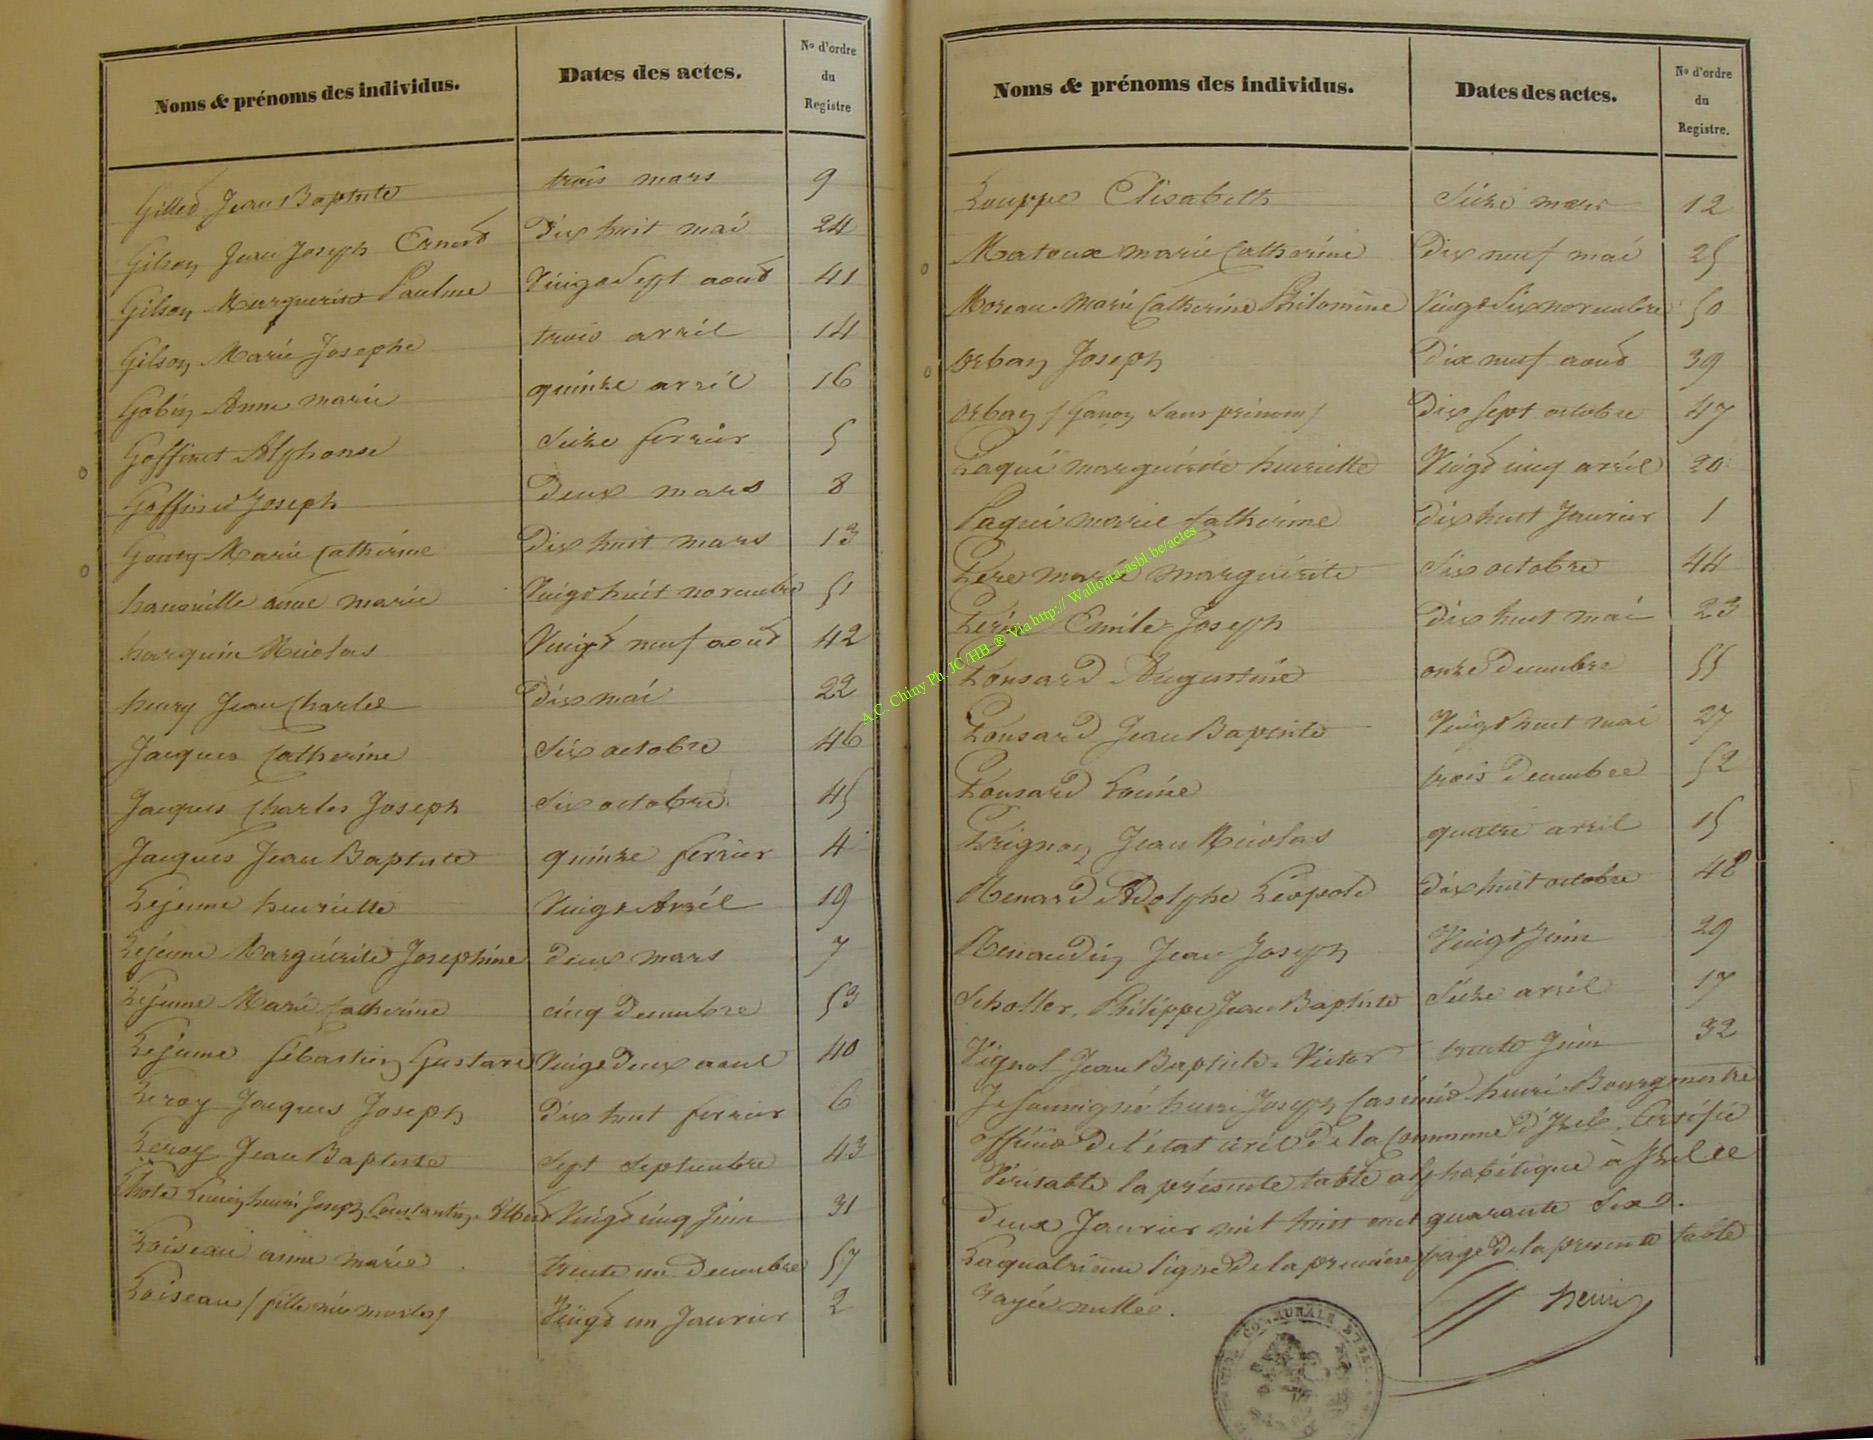 Noms & prénoms des individus. Dates des actes. No d'ordre du Registre
Gilles Jean Baptiste trois mars 9
Gilson Jean Joseph Ernest Dix huit mai 24
Gilson Marguerite Pauline Vingt Sept aout 41
Gilson Marie Josephe trois avril 14
Gobin Anne marie quinze avril 16
Goffinet Alphonse Seize ferrier 5
Goffinet Joseph Deux mars 8
Gouty Marie Catherine Dix huit mars 13
hanouille anne marie Vingt huit novembre 51
harquin Nicolas Vingt neuf aout 42
henry Jean Charles Dix mai 22
Jacques Catherine Six octobre 46
Jacques Charles Joseph Six octobre 45
Jacques Jean Baptiste quinze ferrier 4
Lejeune henriette Vingt Avril 19
Lejeune Marguérite Josephine Deux mars 7
Lejeune Marie Catherine cinq Decembre 53
Lejeune Sébastien Gustave Vingt Deux aout 40
Leroy Jacques Joseph Dix huit ferrier 6
Leroy Jean Baptiste Sept Septembre 43
Lhote henri Joseph Constantin Albert Vingt cinq Juin 31
Loiseau anne marie trente un Decembre 57
Loiseau (fille née morte) Vingt un Janvier 2
Noms & prénoms des individus. Dates des actes. No d'ordre du Registre.
Louppe Elisabeth Seize mars 12
Matoux marie Catherine Dix neuf mai 25
Moreau Marie Catherine Philomène Vingt Six novembre 50
Orban Joseph Dix neuf aout 39
Orban (Garçon Sans prénom) Dix Sept octobre 47
Paqui marguérite henriette Vingt cinq avril 20
Paqui marie Catherine Dix huit Janvier 1
Père marie marguérite Six octobre 44
Emile Joseph Dix huit mai 23
Ponsard Augustine onze Decembre 55
Ponsard Jean Baptiste Vingt huit mai 27
Ponsard Louise trois Decembre 52
Prignon Jean Nicolas quatre avril 15
Renard Adolphe Léopold Dix huit octobre 48
Renaudin Jean Joseph Vingt Juin 29
Scholler Philippe Jean Baptiste Seize avril 17
Vignol Jean Baptiste Victor trente Juin 32
Je Soussigné henri Joseph Casimir henri Bourgmestre
officier De l'état civil De la Commune D'Izel. Certifie
Véritable la présente table alphabétique à Izel le
deux Janvier mil huit cent quarante Six.
La quatrième ligne De la première page De la presente table
rayée nulle. henri
A.C. Chiny Ph. JC/HB ® Via http:// Wallonia-asbl.be/actes